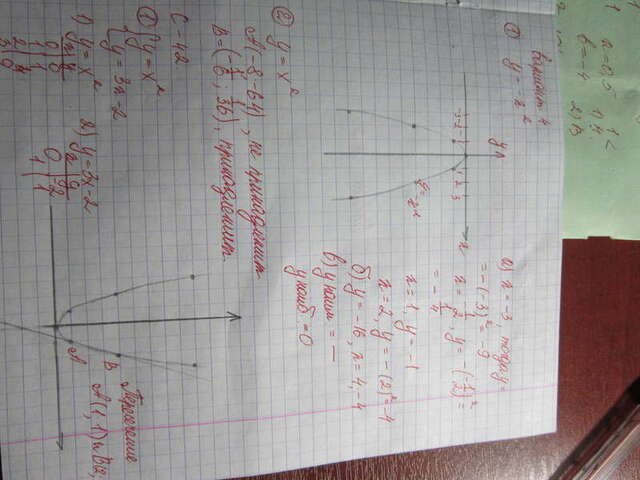 Вариант 4
① y = -x²
y
-3 -2
1 2 3
x
y = -x²
а) x = -3, тогда y =
= -(-3)² = -9
x = -1/2, y = -(-1/2)² =
= -1/4
x = 1, y = -1
x = 2, y = -(2)² = -4
б) y = -16, x = 4, -4
в) y наим = —
y наиб = 0
② y = x²
A(-8 -64), не принадлежит
B = (-1/6; 1/36), принадлежит.
С - 42
① { y = x²
{ y = 3x - 2
1) y = x²
x y
0 0
1 1
2 4
3 9
2) y = 3x - 2
x y
0 -2
1 1
A
B
Пересечение
A(1, 1) и B(2,